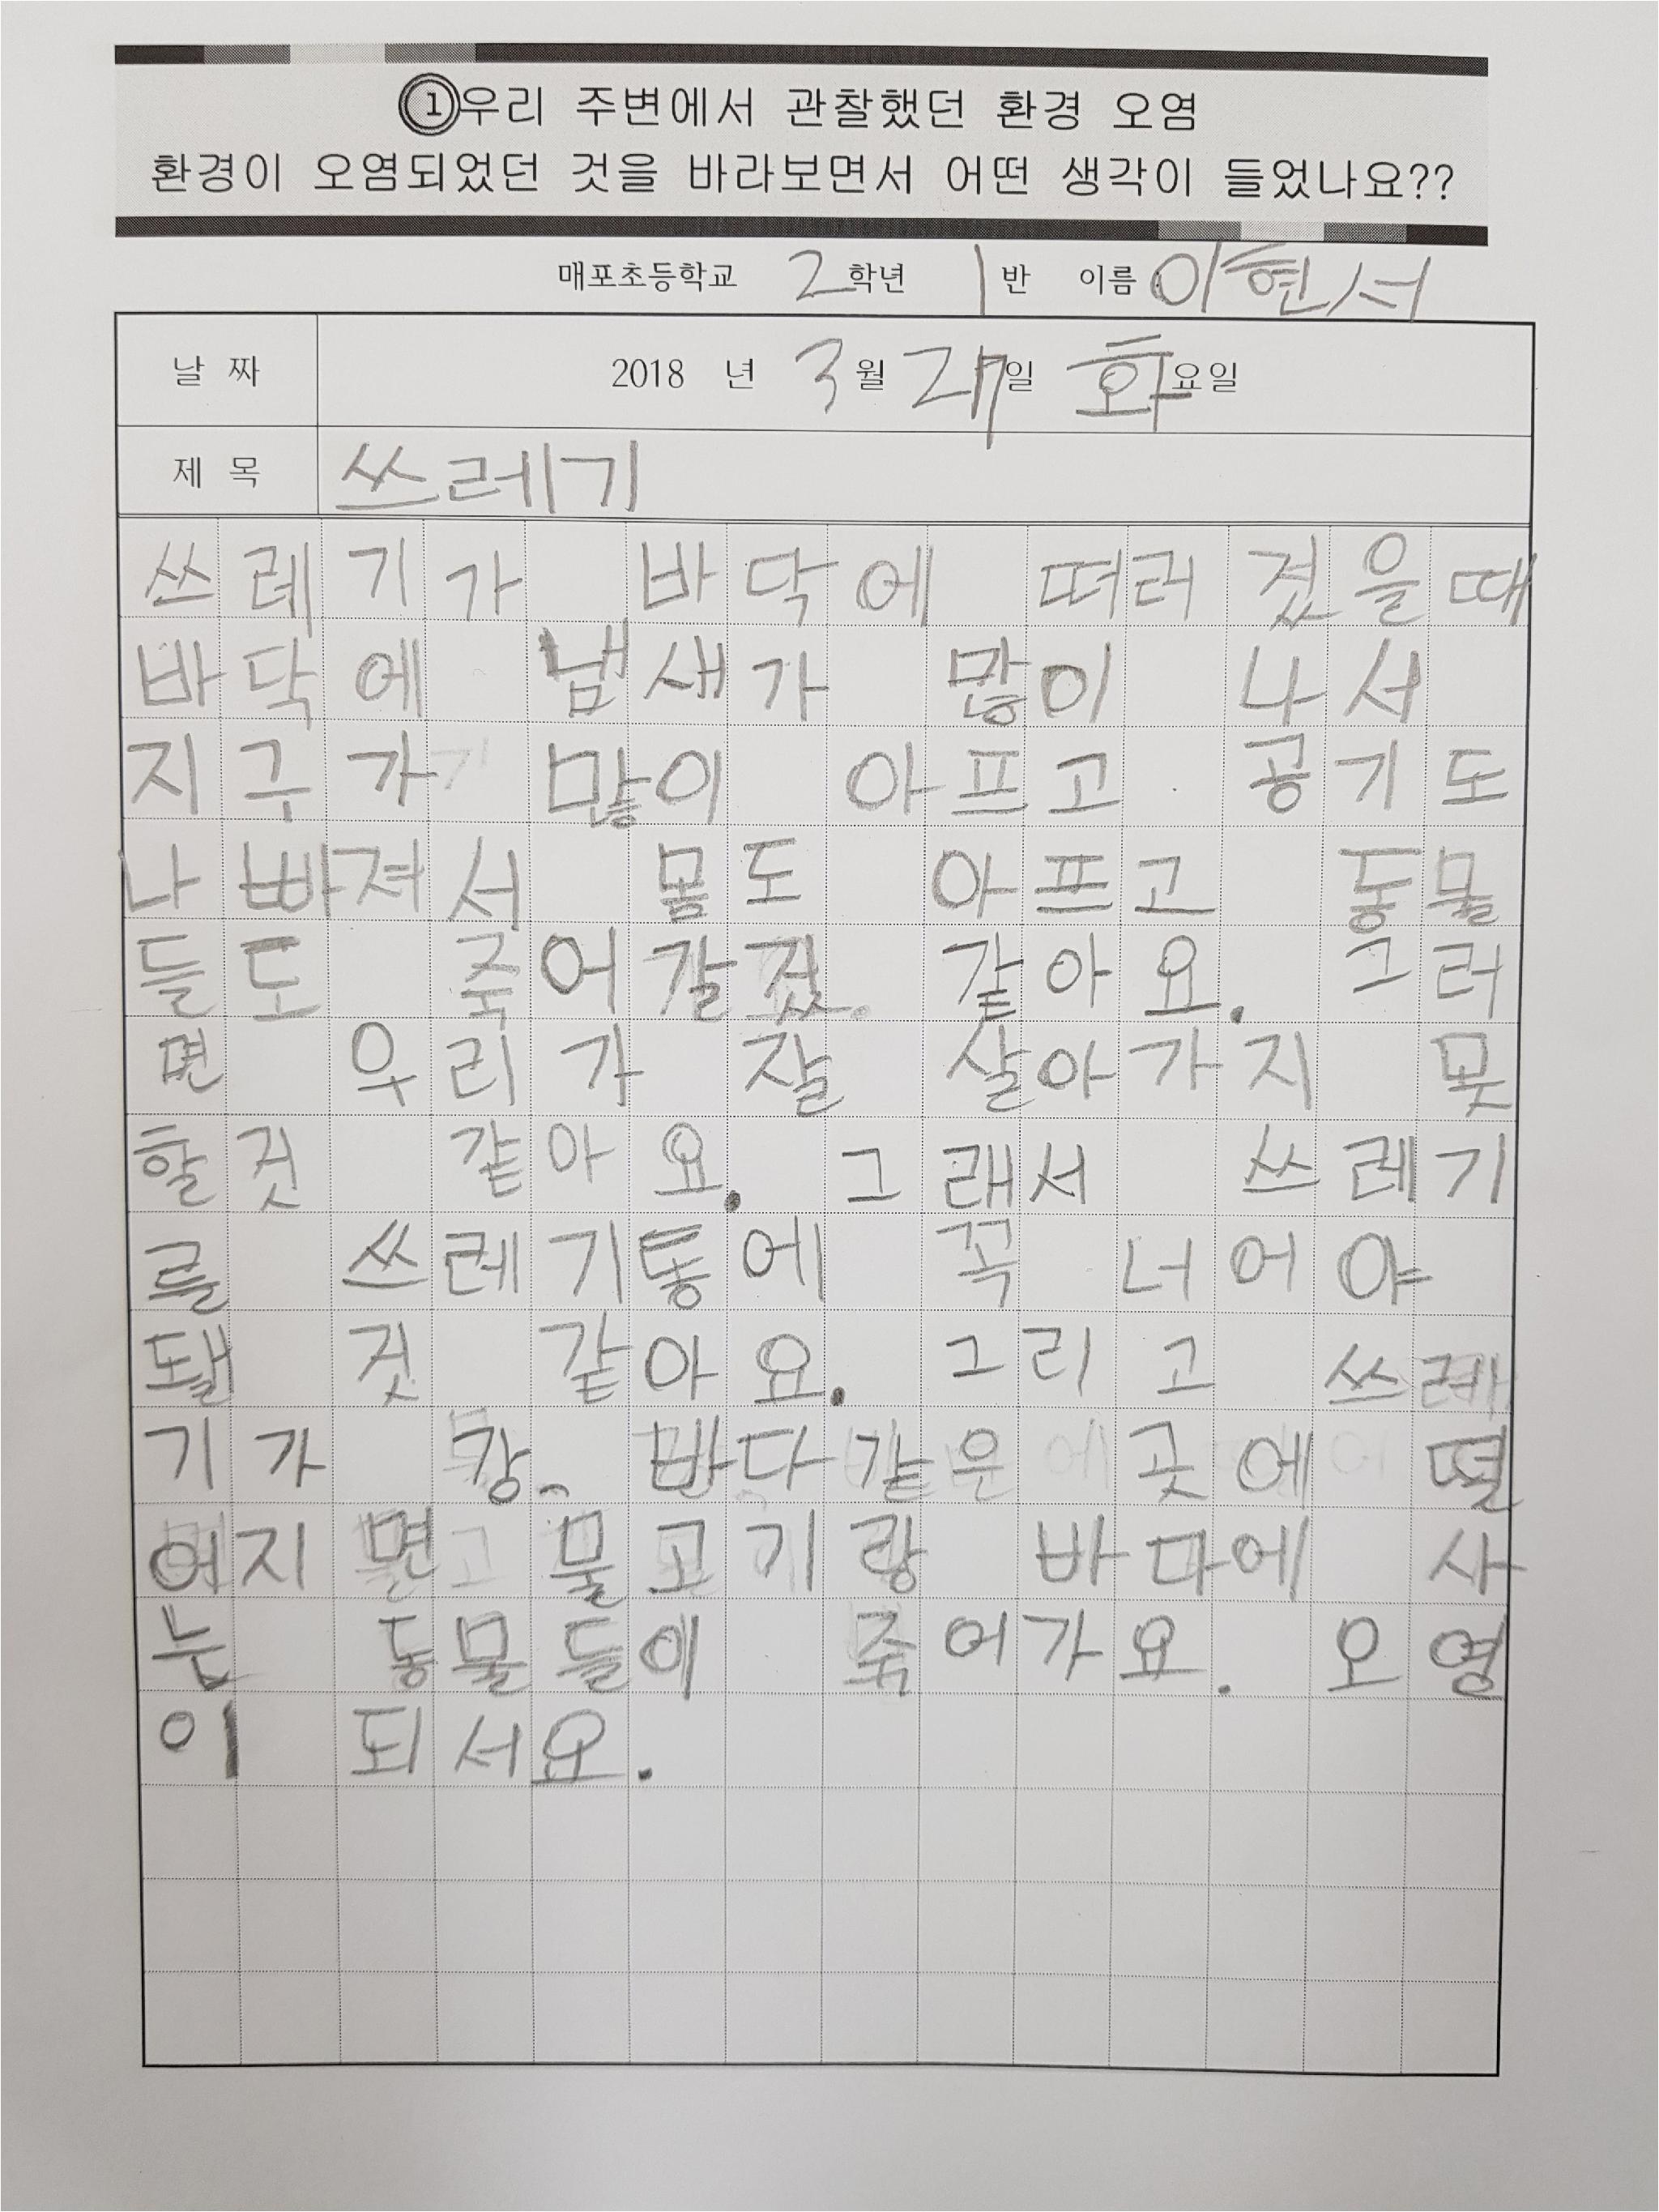 ①우리 주변에서 관찰했던 환경 오염
환경이 오염되었던 것을 바라보면서 어떤 생각이 들었나요??
매포초등학교 2학년 1반 이름: 이현서
날 짜 2018 년 3월 27일 화요일
제 목 쓰레기
쓰레기가 바닥에 떠러젔을때
바닥에 냄새가 많이 나서
지구가 많이 아프고 공기도
나빠져서 몸도 아프고 동물
들도 죽어갈 같아요. 그러
면 우리가 잘 살아가지 못
할것 같아요. 그래서 쓰레기
를 쓰레기통에 꼭 너어야
됄 것 같아요. 그리고 쓰레
기가 강, 바다같은 곳에 떨
어지면 물고기랑 바다에 사
는 동물들이 죽어가요. 오영
이 되서요.